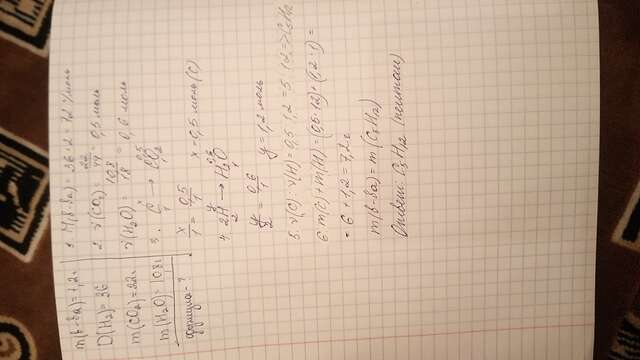 m(в-ва)=7,2г
D(H₂)=36
m(CO₂)=22г
m(H₂O)=10,8г
формула-?
1. M(в-ва)=36·2=72 г/моль
2. ν(CO₂)=22/44=0,5 моль
ν(H₂O)=10,8/18=0,6 моль
x 0,5
3. C → CO₂
1 1
x/1=0,5/1 x=0,5 моль(C)
y 0,6
4. 2H → H₂O
2 1
y/2=0,6/1 y=1,2 моль
5. ν(C):ν(H)=0,5:1,2=5:12⇒C₅H₁₂
6 m(C)+m(H)=(0,5·12)+(1,2·1)=
=6+1,2=7,2г
m(в-ва)=m(C₅H₁₂)
Ответ: C₅H₁₂ (пентан)